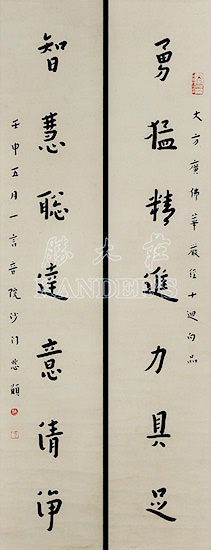 大方廣佛華嚴經十迴向品
勇猛精進力具足
智慧聡達意清淨
壬申五月一言音院沙门悲願
勝大莊